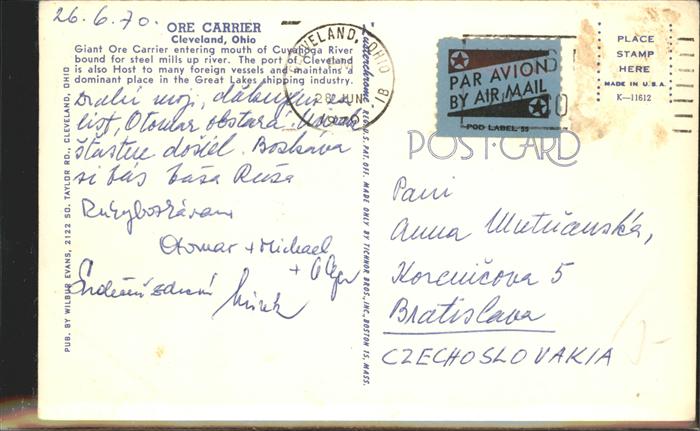 26.6.70.
ORE CARRIER
Cleveland, Ohio
Giant Ore Carrier entering mouth of Cuyahoga River
bound for steel mills up river. The port of Cleveland
is also Host to many foreign vessels and maintains a
dominant place in the Great Lakes shipping industry.
Drahí moji, ďakujem za
list, Otomar obstará.
šťastne došiel. Bozkáva
si Vás Vaša Ruža
Rukybozkávam
Otomar + Michael
+ Olga
Srdečné zdraví
PUB. BY WILBUR EVANS, 2122 SO. TAYLOR RD., CLEVELAND, OHIO
Lusterchrome REG. U.S. PAT. OFF. MADE ONLY BY TICHNOR BROS., INC., BOSTON 15, MASS.
CLEVELAND, OHIO
26 JUN
1970
PAR AVION
BY AIR MAIL
POD LABEL 55
PLACE
STAMP
HERE
MADE IN U.S.A.
K-11612
POST CARD
Pani
Anna
Koreničova 5
Bratislava
CZECHOSLOVAKIA